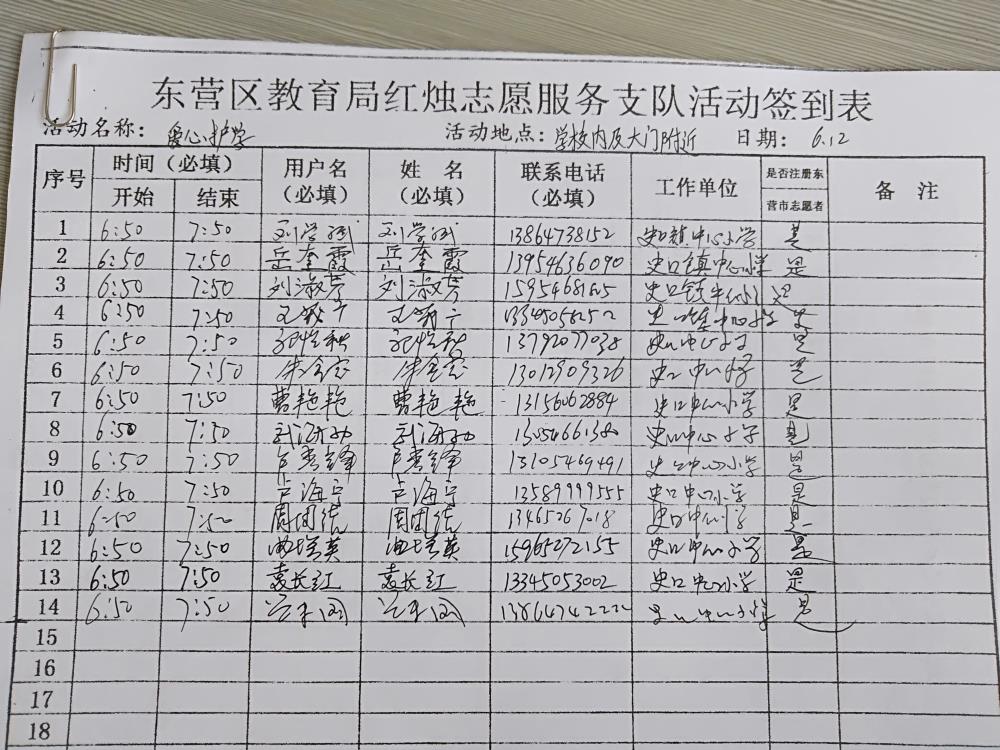 东营区教育局红烛志愿服务支队活动签到表
活动名称： 爱心护学 活动地点：学校内及大门附近 日期： 6.12
序号 时间（必填） 用户名（必填） 姓 名（必填） 联系电话（必填） 工作单位 是否注册东营市志愿者 备 注
开始 结束
1 6:50 7:50 刘学 刘学 13864738152 史口镇中心小学 是
2 6:50 7:50 岳奎霞 岳奎霞 13954636090 史口镇中心小学 是
3 6:50 7:50 刘淑芳 刘淑芳 史口镇中心小学 是
4 6:50 7:50 中心小学 是
5 6:50 7:50 13792077038 史口中心小学 是
6 6:50 7:50 朱 朱 13012909326 史口中心小学 是
7 6:50 7:50 曹艳艳 曹艳艳 13156062884 史口中心小学 是
8 6:50 7:50 武海 武海 13054661380 史口中心小学 是
9 6:50 7:50 卢秀锋 卢秀锋 13105469491 史口中心小学 是
10 6:50 7:50 卢海宁 卢海宁 13589999555 史口中心小学 是
11 6:50 7:50 周团结 周团结 13465267018 史口中心小学 是
12 6:50 7:50 曲瑞英 曲瑞英 15965272155 史口中心小学 是
13 6:50 7:50 袁长红 袁长红 13345053002 史口中心小学 是
14 6:50 7:50 13864742222 史口中心小学 是
15
16
17
18